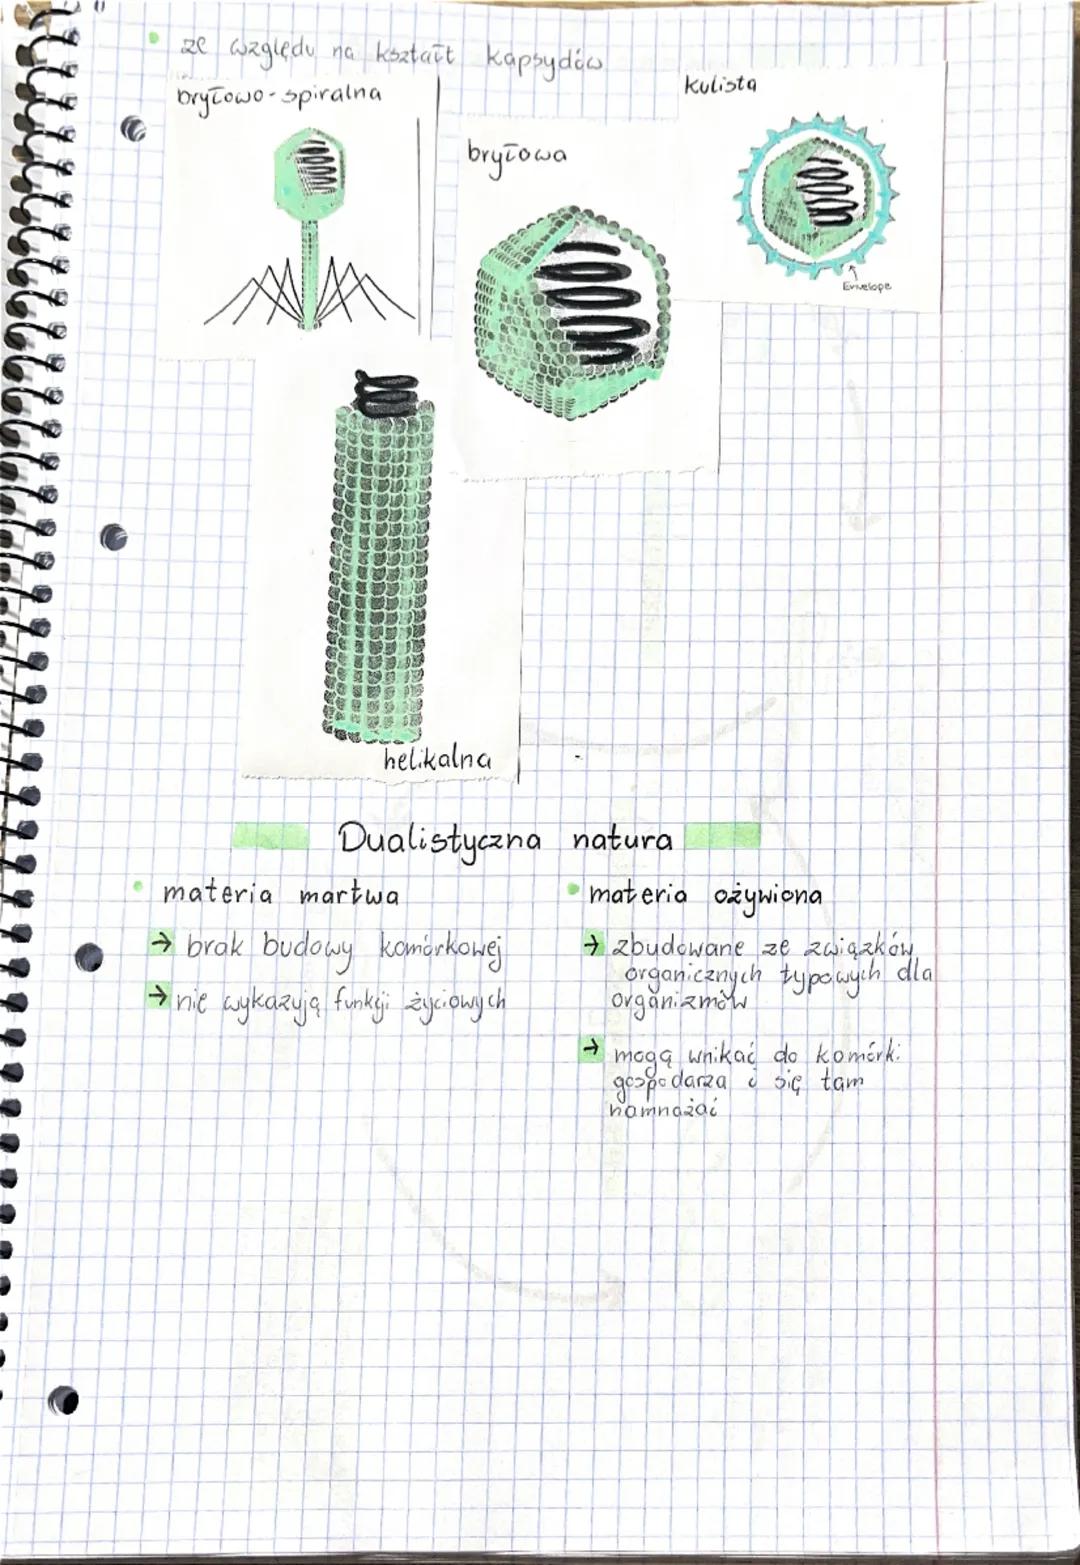 ze względu na kształt kapsydów
bryłowo-spiralna
kulista
bryłowa
Envelope
helikalna
Dualistyczna natura
materia martwa
→ brak budowy komórkowej
→ nie wykazują funkcji życiowych
materia ożywiona
→ zbudowane ze związków
organicznych typowych dla
organizmów
→ mogą wnikać do komórki
gospodarza i się tam
namnażać